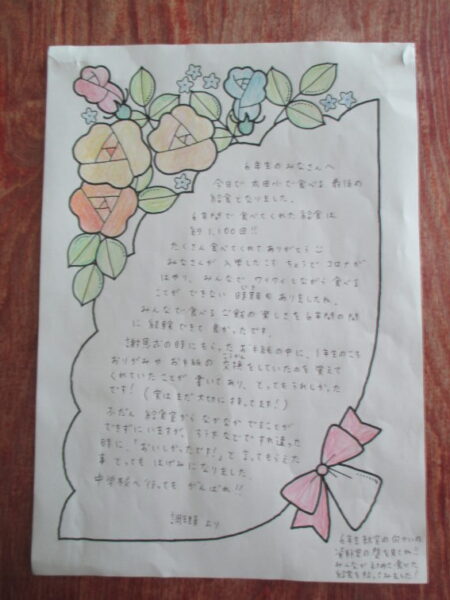 6年生のみなさんへ
今日で太田小で食べる最後の
給食となりました。
6年間で食べてくれた給食は
約1,100回!!
たくさん食べてくれてありがとう
みなさんが入学したころ ちょうどコロナが
はやり、みんなでワイワイしながら食べる
ことができない時期もありましたね。
みんなで食べるご飯の楽しさを6年間の間
に経験できて良かったです。
謝恩会の時にもらったお手紙の中に、1年生のころ
おりがみやお手紙の交換をしていたのを覚えて
くれていたことが書いてあり、とってもうれしかった
です!(実はまだ大切に持ってます!)
ふだん給食室からなかなかでることが
できずにいますが、ろう下などですれ違った
時に、「おいしかったです!」と言ってもらえた
事とってもはげみになりました。
中学校へ行ってもがんばれ!!
調理 より
6年生教室の向かいの
みんなが
給食を